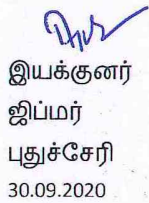 இயக்குனர்
ஜிப்மர்
புதுச்சேரி
30.09.2020